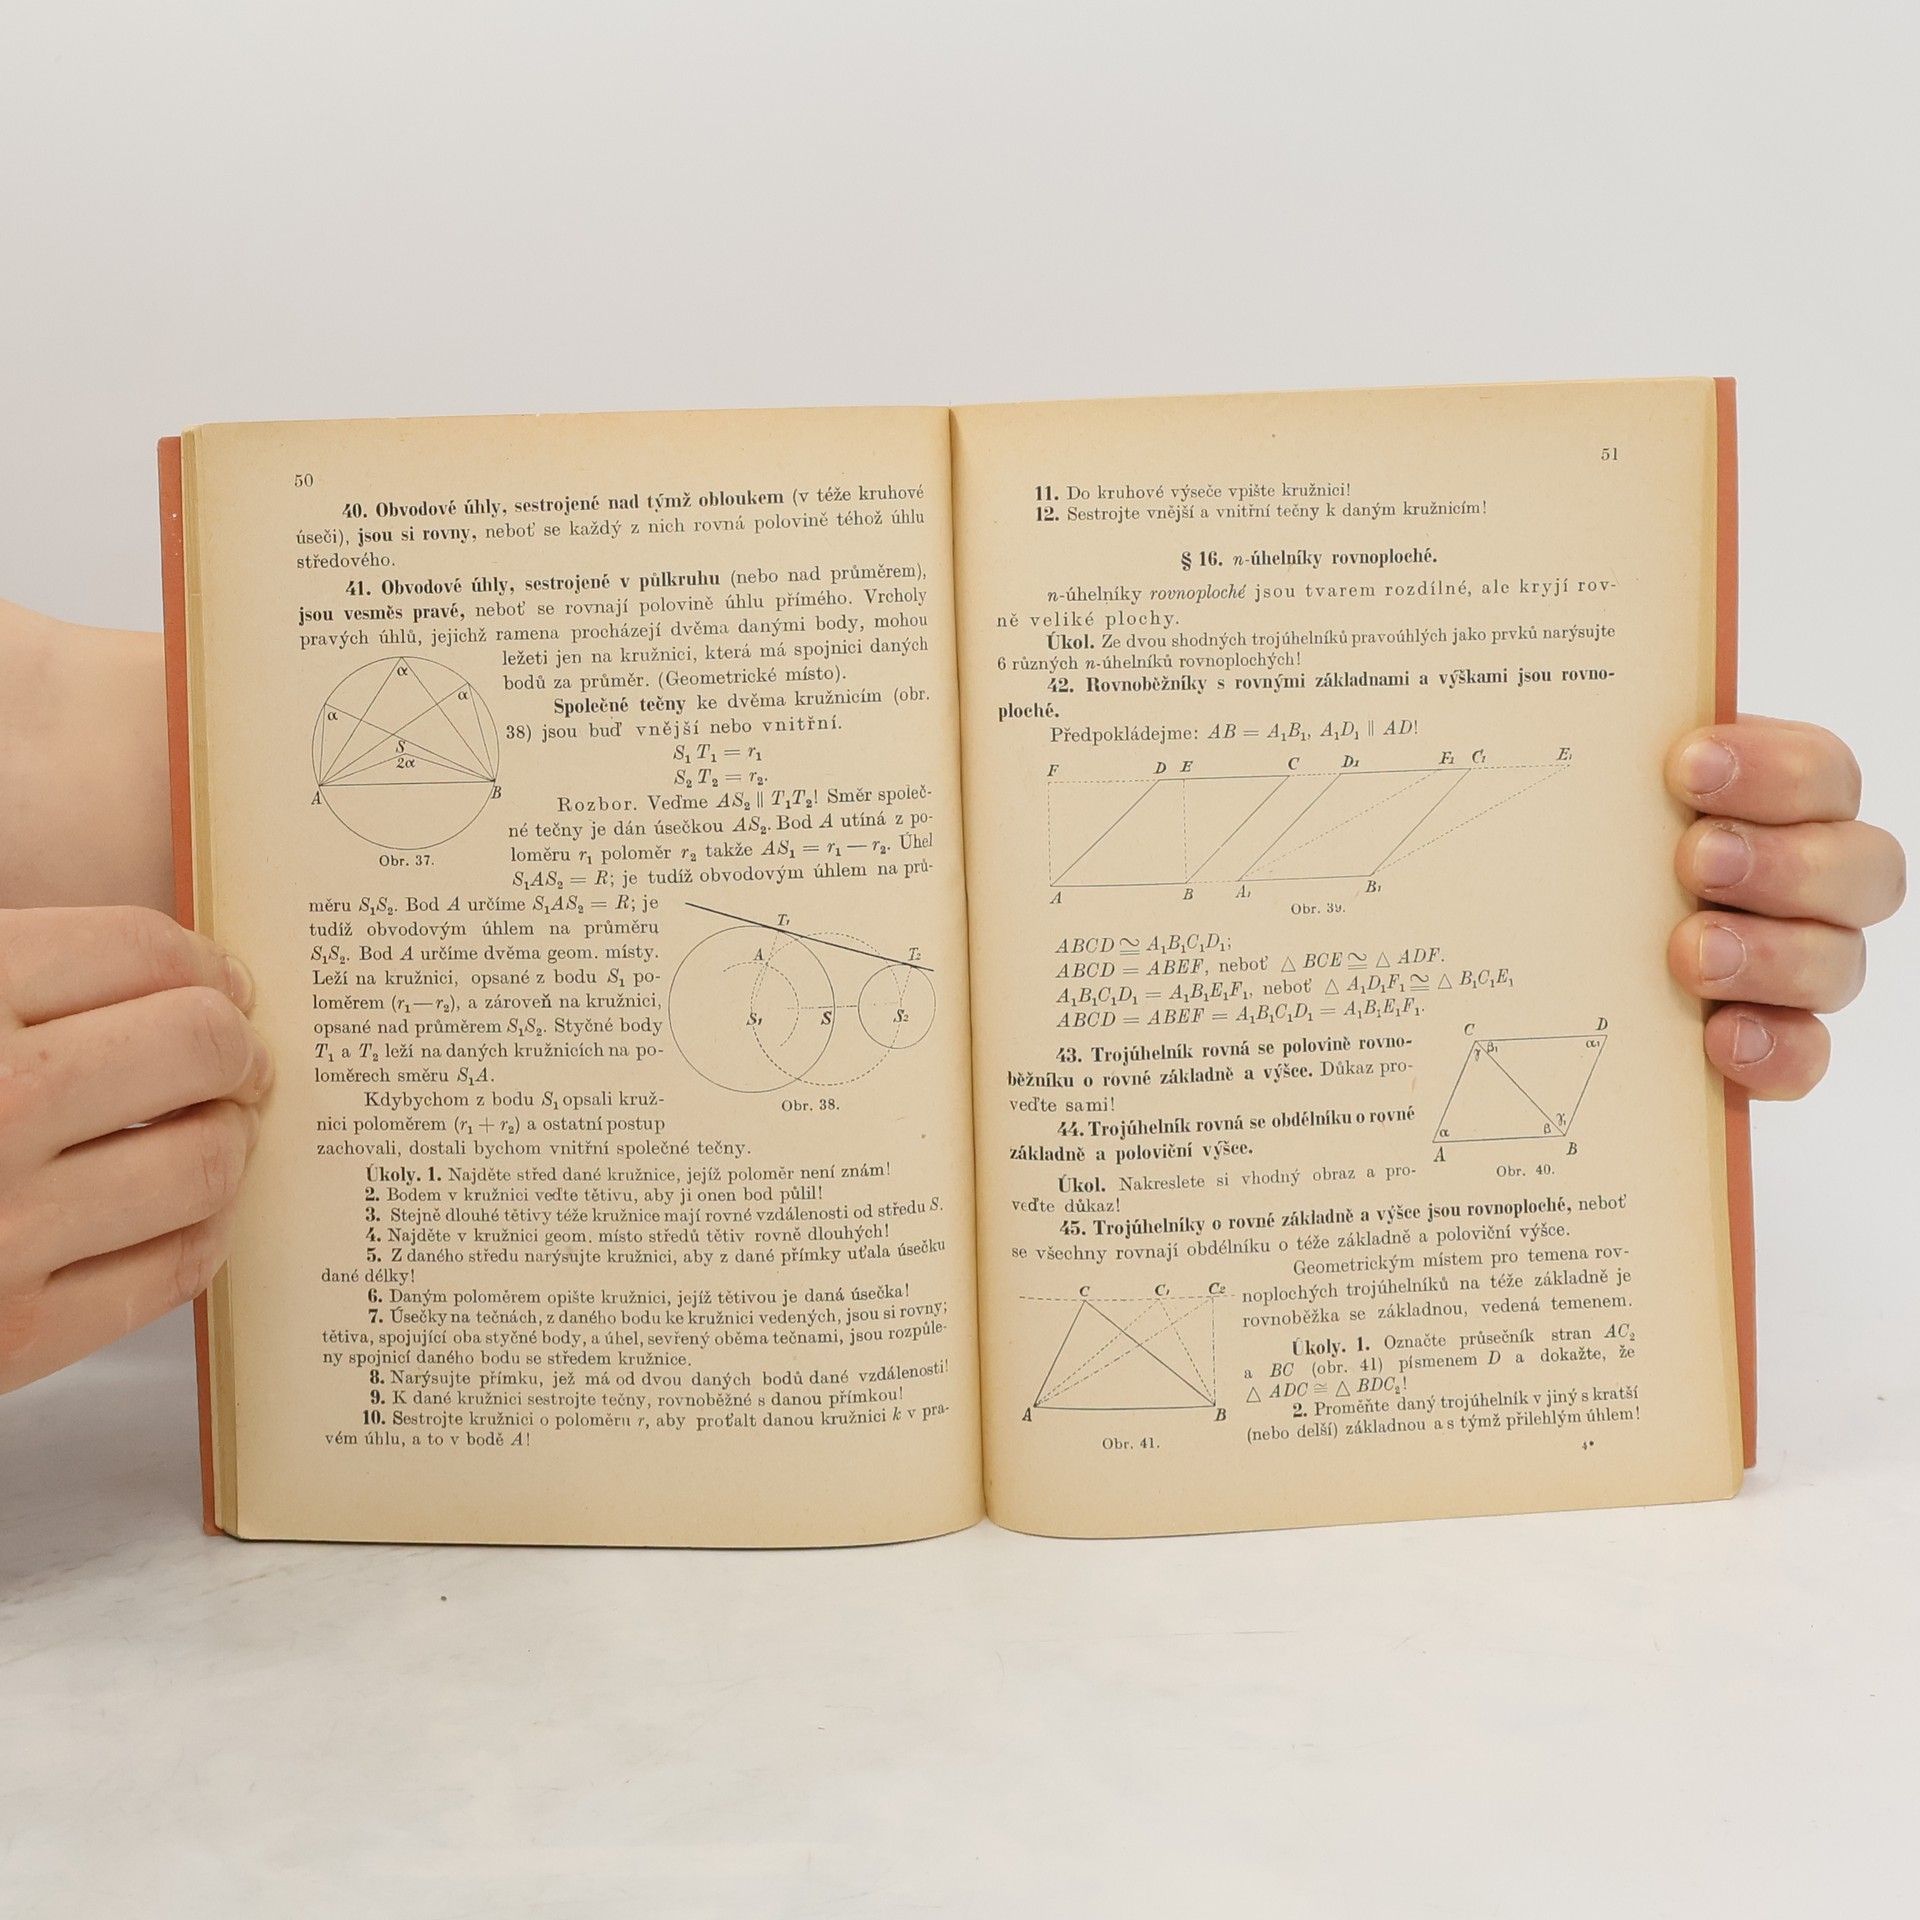 50
40. Obvodové úhly, sestrojené nad týmž obloukem (v téže kruhové
úseči), jsou si rovny, neboť se každý z nich rovná polovině téhož úhlu
středového.
41. Obvodové úhly, sestrojené v půlkruhu (nebo nad průměrem),
jsou vesměs pravé, neboť se rovnají polovině úhlu přímého. Vrcholy
pravých úhlů, jejichž ramena procházejí dvěma danými body, mohou
ležeti jen na kružnici, která má spojnici daných
bodů za průměr. (Geometrické místo).
Společné tečny ke dvěma kružnicím (obr.
38) jsou buď vnější nebo vnitřní.
S₁T₁ = r₁
S₂T₂ = r₂.
Rozbor. Veďme AS₂ ∥ T₁T₂! Směr společ-
né tečny je dán úsečkou AS₂. Bod A utíná z po-
loměru r₁ poloměr r₂ takže AS₁ = r₁ — r₂. Úhel
S₁AS₂ = R; je tudíž obvodovým úhlem na prů-
α
α
α
S
2α
A
B
Obr. 37.
měru S₁S₂. Bod A určíme S₁AS₂ = R; je
tudíž obvodovým úhlem na průměru
S₁S₂. Bod A určíme dvěma geom. místy.
Leží na kružnici, opsané z bodu S₁ po-
loměrem (r₁—r₂), a zároveň na kružnici,
opsané nad průměrem S₁S₂. Styčné body
T₁ a T₂ leží na daných kružnicích na po-
loměrech směru S₁A.
Kdybychom z bodu S₁ opsali kruž-
nici poloměrem (r₁ + r₂) a ostatní postup
zachovali, dostali bychom vnitřní společné tečny.
T₁
A
T₂
S₁
S
S₂
Obr. 38.
Úkoly. 1. Najděte střed dané kružnice, jejíž poloměr není znám!
2. Bodem v kružnici veďte tětivu, aby ji onen bod půlil!
3. Stejně dlouhé tětivy téže kružnice mají rovné vzdálenosti od středu S.
4. Najděte v kružnici geom. místo středů tětiv rovně dlouhých!
5. Z daného středu narýsujte kružnici, aby z dané přímky uťala úsečku
dané délky!
6. Daným poloměrem opište kružnici, jejíž tětivou je daná úsečka!
7. Úsečky na tečnách, z daného bodu ke kružnici vedených, jsou si rovny;
tětiva, spojující oba styčné body, a úhel, sevřený oběma tečnami, jsou rozpůle-
ny spojnicí daného bodu se středem kružnice.
8. Narýsujte přímku, jež má od dvou daných bodů dané vzdálenosti!
9. K dané kružnici sestrojte tečny, rovnoběžné s danou přímkou!
10. Sestrojte kružnici o poloměru r, aby proťalt danou kružnici k v pra-
vém úhlu, a to v bodě A!
51
11. Do kruhové výseče vpište kružnici!
12. Sestrojte vnější a vnitřní tečny k daným kružnicím!
§ 16. n-úhelníky rovnoploché.
n-úhelníky rovnoploché jsou tvarem rozdílné, ale kryjí rov-
ně veliké plochy.
Úkol. Ze dvou shodných trojúhelníků pravoúhlých jako prvků narýsujte
6 různých n-úhelníků rovnoplochých!
42. Rovnoběžníky s rovnými základnami a výškami jsou rovno-
ploché.
Předpokládejme: AB = A₁B₁, A₁D₁ ∥ AD!
F D E C D₁ F₁ C₁ E₁
A B A₁ B₁
Obr. 39.
ABCD ≅ A₁B₁C₁D₁;
ABCD = ABEF, neboť △ BCE ≅ △ ADF.
A₁B₁C₁D₁ = A₁B₁E₁F₁, neboť △ A₁D₁F₁ ≅ △ B₁C₁E₁
ABCD = ABEF = A₁B₁C₁D₁ = A₁B₁E₁F₁.
43. Trojúhelník rovná se polovině rovno-
běžníku o rovné základně a výšce. Důkaz pro-
veďte sami!
44. Trojúhelník rovná se obdélníku o rovné
základně a poloviční výšce.
Úkol. Nakreslete si vhodný obraz a pro-
veďte důkaz!
C D
γ β₁ α₁
α β γ₁
A B
Obr. 40.
45. Trojúhelníky o rovné základně a výšce jsou rovnoploché, neboť
se všechny rovnají obdélníku o téže základně a poloviční výšce.
Geometrickým místem pro temena rov-
noplochých trojúhelníků na téže základně je
rovnoběžka se základnou, vedená temenem.
C C₁ C₂
A B
Obr. 41.
Úkoly. 1. Označte průsečník stran AC₂
a BC (obr. 41) písmenem D a dokažte, že
△ ADC ≅ △ BDC₂!
2. Proměňte daný trojúhelník v jiný s kratší
(nebo delší) základnou a s týmž přilehlým úhlem!
4*